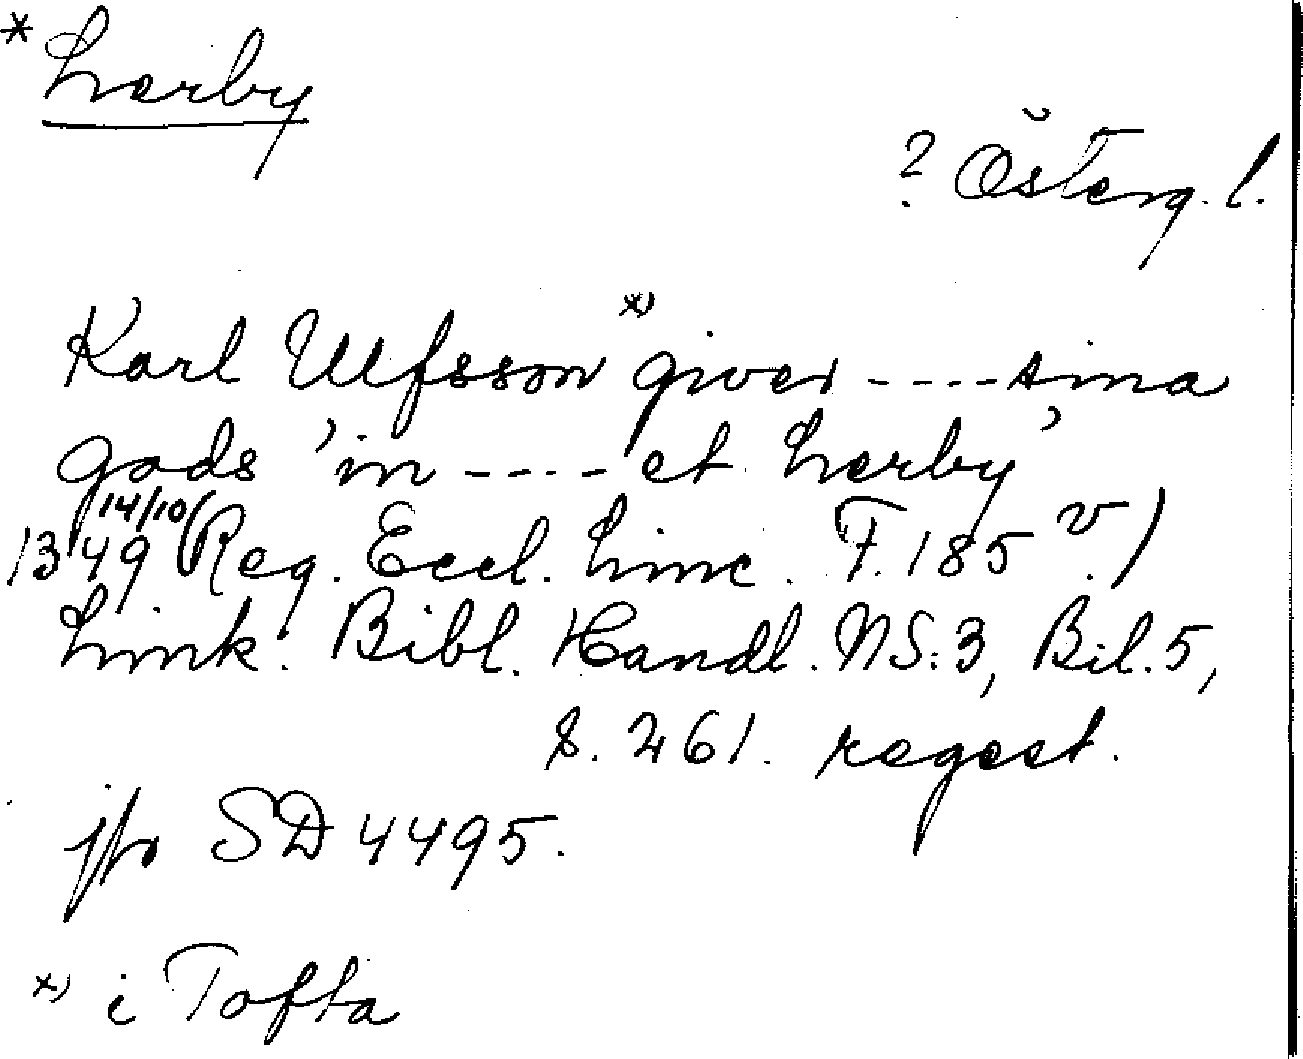 * Lerby
? Österg. l.
Karl Ulfsson *) giver ---- sina
gods 'in ---- et Lerby'
1349 14/10 (Reg. Eccl. Linc. F. 185 v.)
Link. Bibl. Handl. NS: 3, Bil. 5,
s. 261. regest.
jfr SD 4495.
*) i Tofta